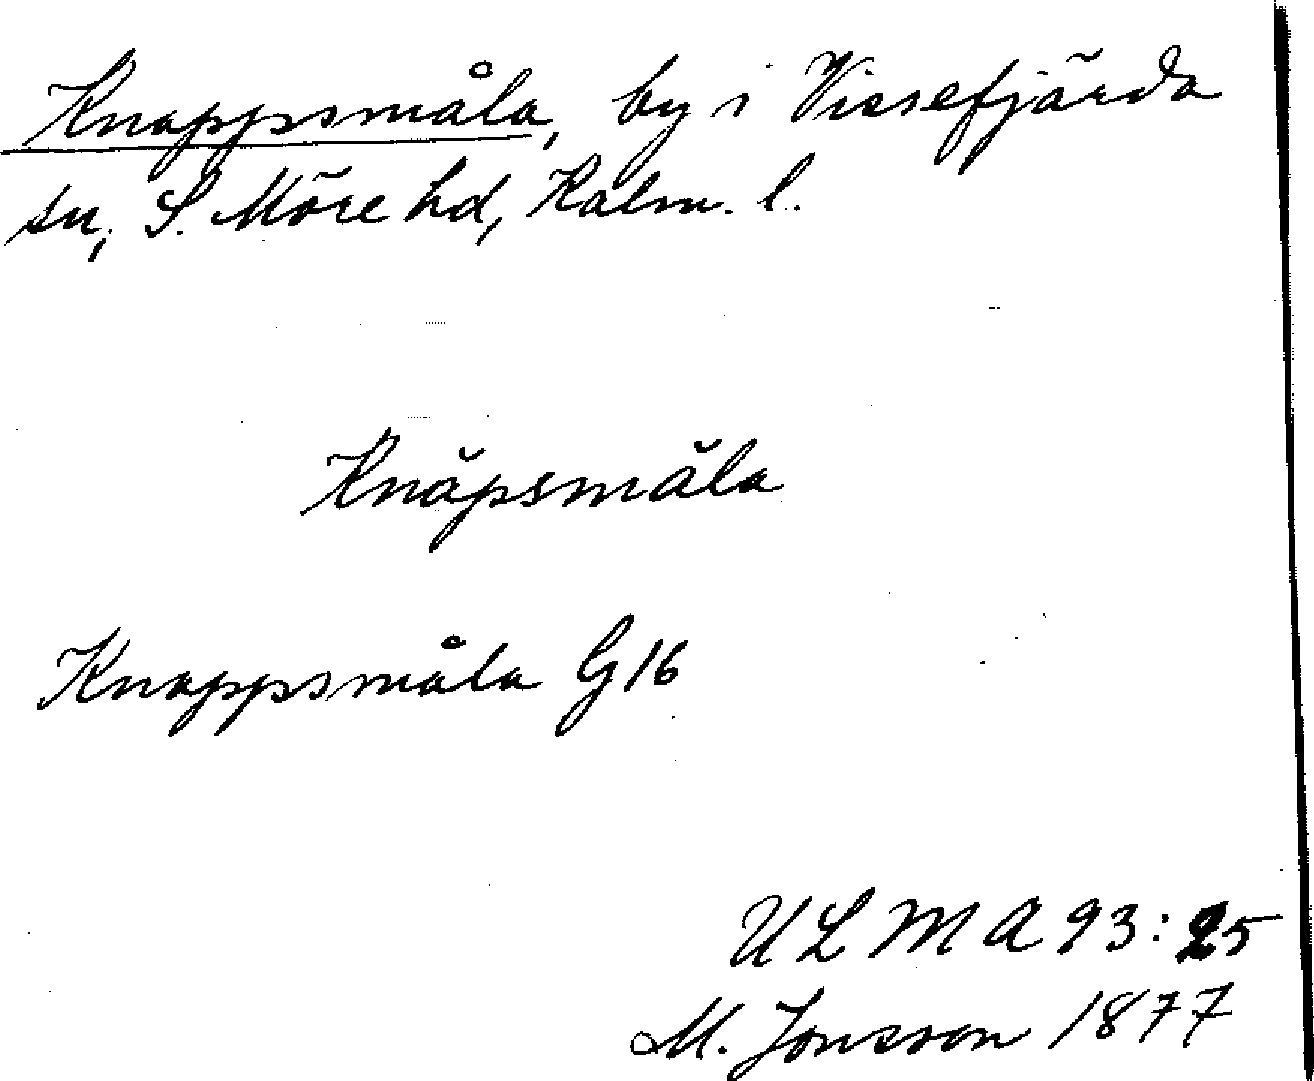 Knappsmåla, by i Vissefjärda
sn, S. Möre hd, Kalm. l.
Knăpsmăla
Knappsmåla G16
ULMA 93:25
M. Jonsson 1877